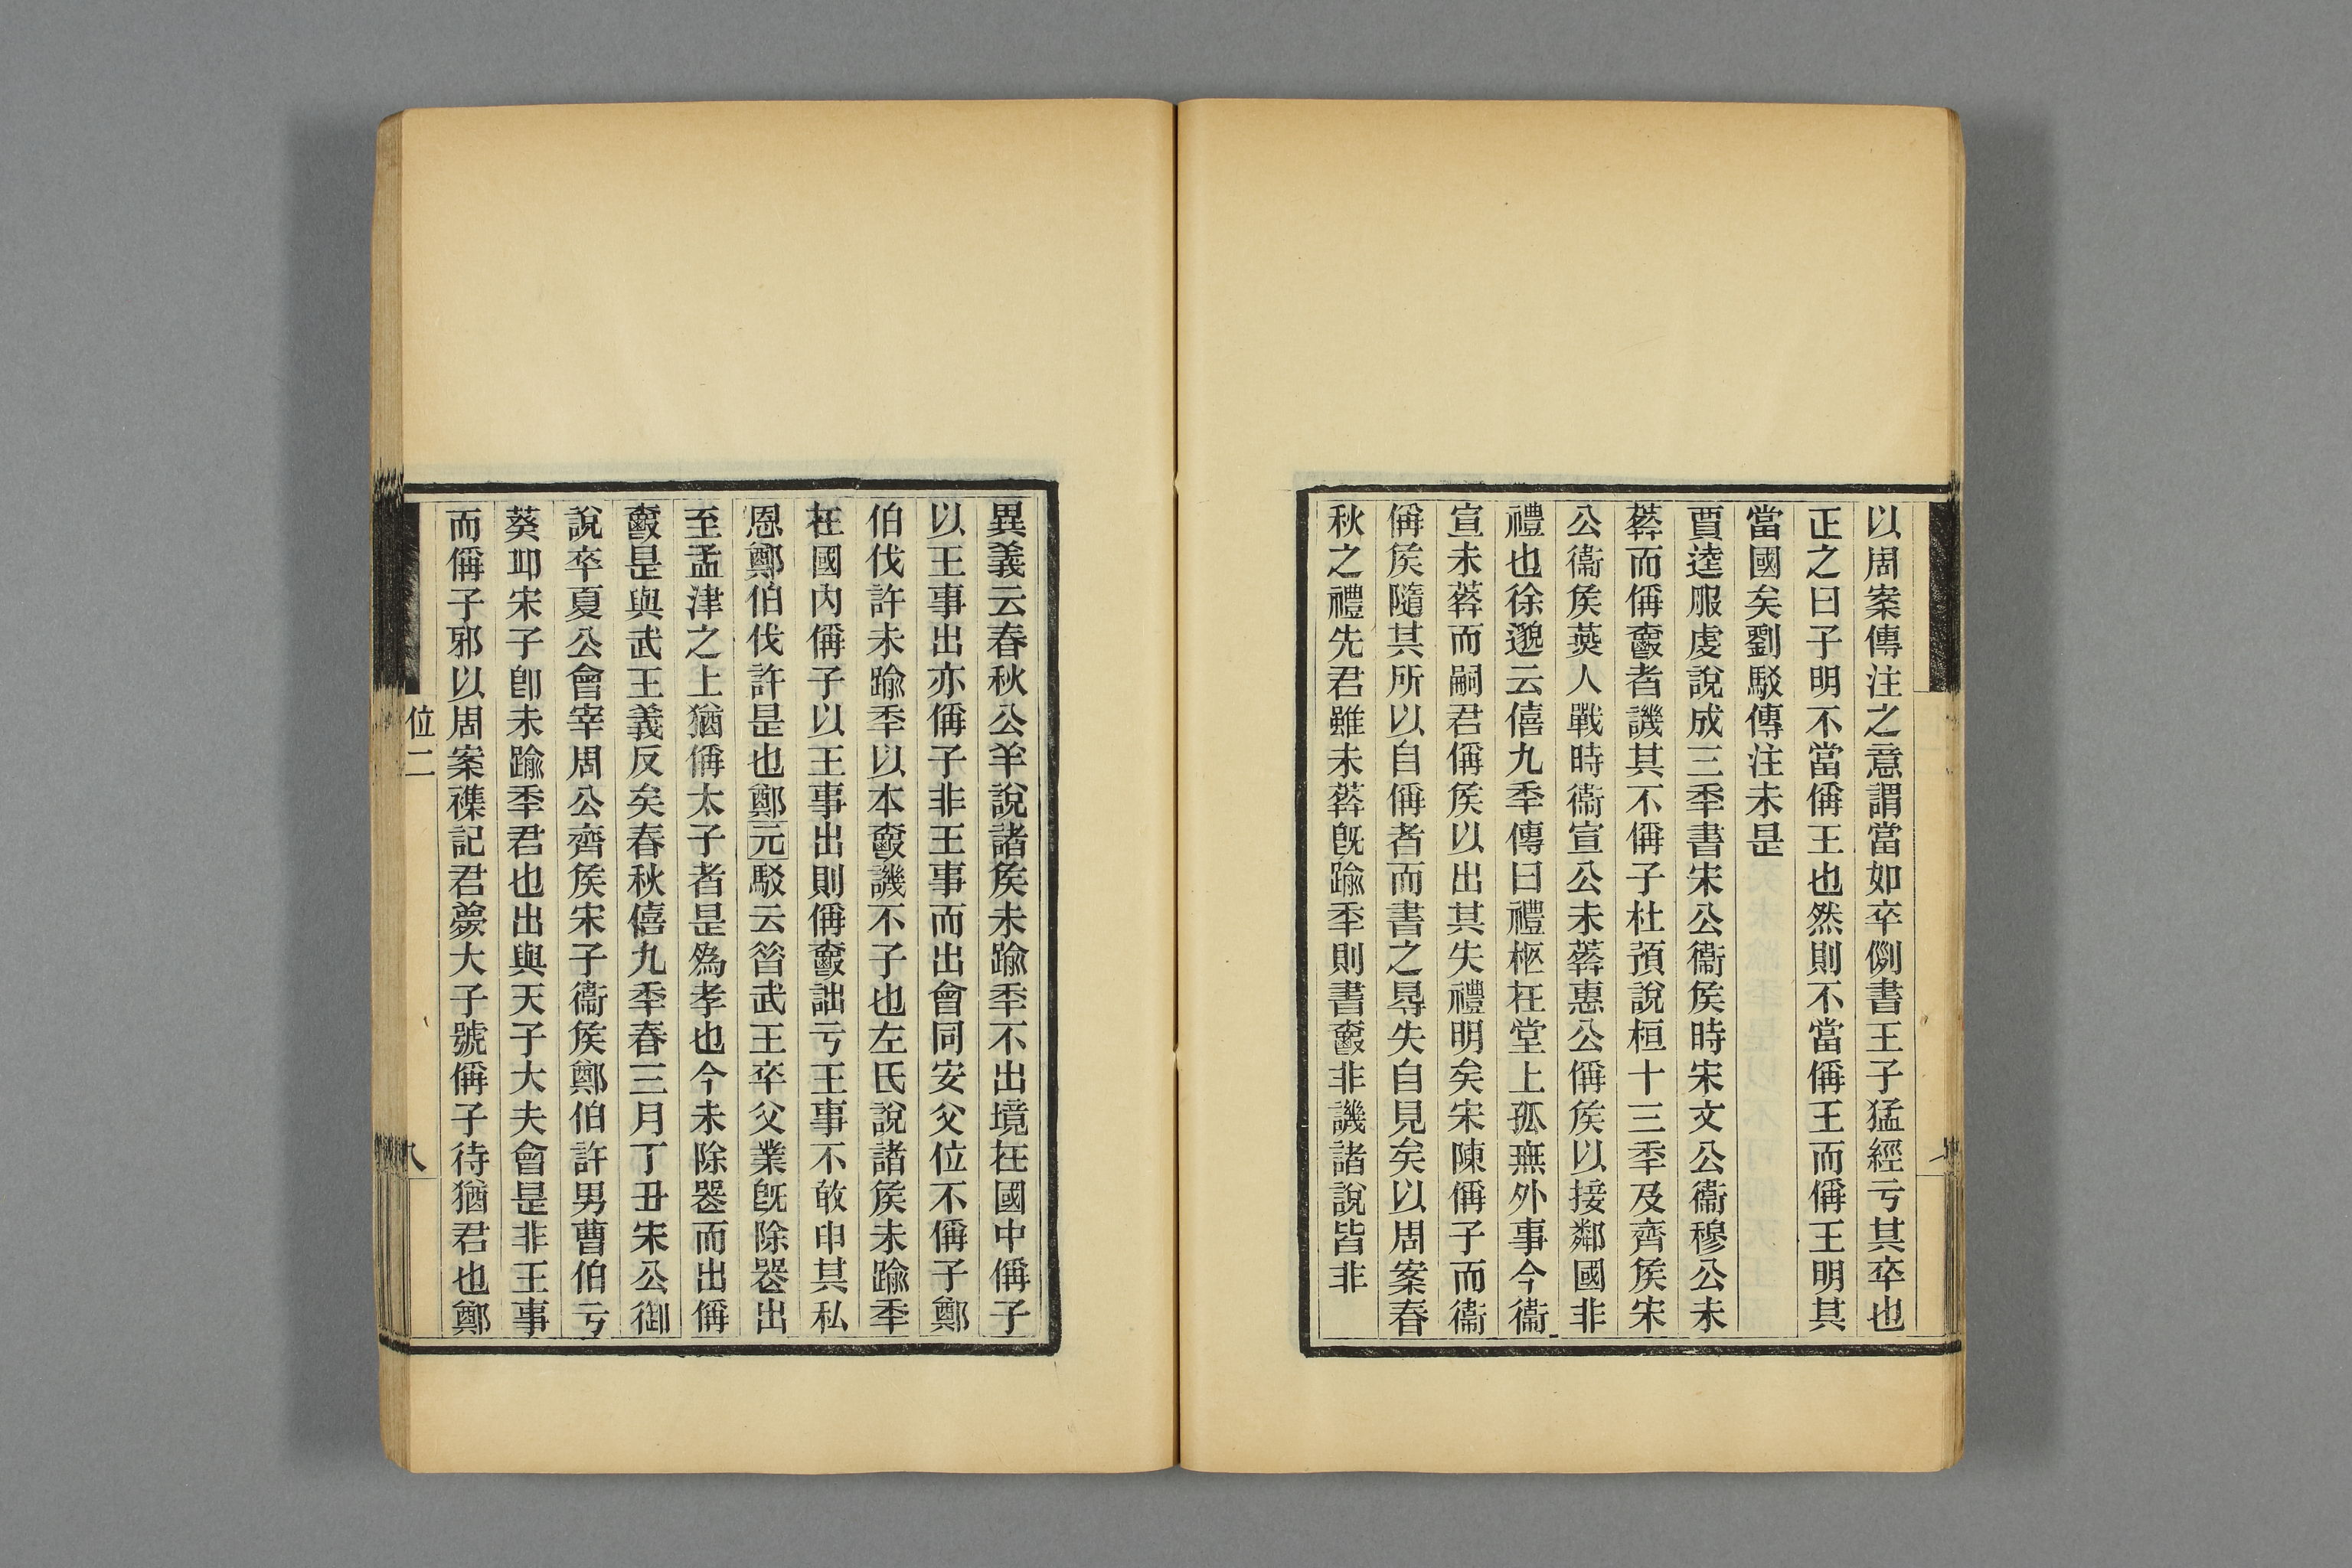 以周案傳注之意謂當如卒側書王子猛經亏其卒也
正之曰子明不當偁王也然則不當偁王而偁王明其
當國矣劉駁傳注未是
賈逵服虔說成三秊書宋公衞矦時宋文公衞穆公未
葬而偁爵者譏其不偁子杜預說桓十三秊及齊矦宋
公衞矦燕人戰時衞宣公未葬惠公偁矦以接鄰國非
禮也徐邈云僖九秊傳曰禮柩在堂上孤無外事今衞
宣未葬而嗣君偁矦以出其失禮明矣宋陳偁子而衞
偁矦隨其所以自偁者而書之㝵失自見矣以周案春
秋之禮先君雖未葬旣踰秊則書爵非譏諸說皆非
異義云春秋公羊說諸矦未踰秊不出境在國中偁子
以王事出亦偁子非王事而出會同安父位不偁子鄭
伯伐許未踰秊以本爵譏不子也左氏說諸矦未踰秊
在國內偁子以王事出則偁爵詘亏王事不敢申其私
恩鄭伯伐許是也鄭元駁云昝武王卒父業旣除喪出
至孟津之上猶偁太子者是爲孝也今未除喪而出偁
爵是與武王義反矣春秋僖九秊春三月丁丑宋公御
說卒夏公會宰周公齊矦宋子衞矦鄭伯許男曹伯亏
葵丘宋子卽未踰秊君也出與天子大夫會是非王事
而偁子邪以周案襍記君薨大子號偁子待猶君也鄭
位二
八